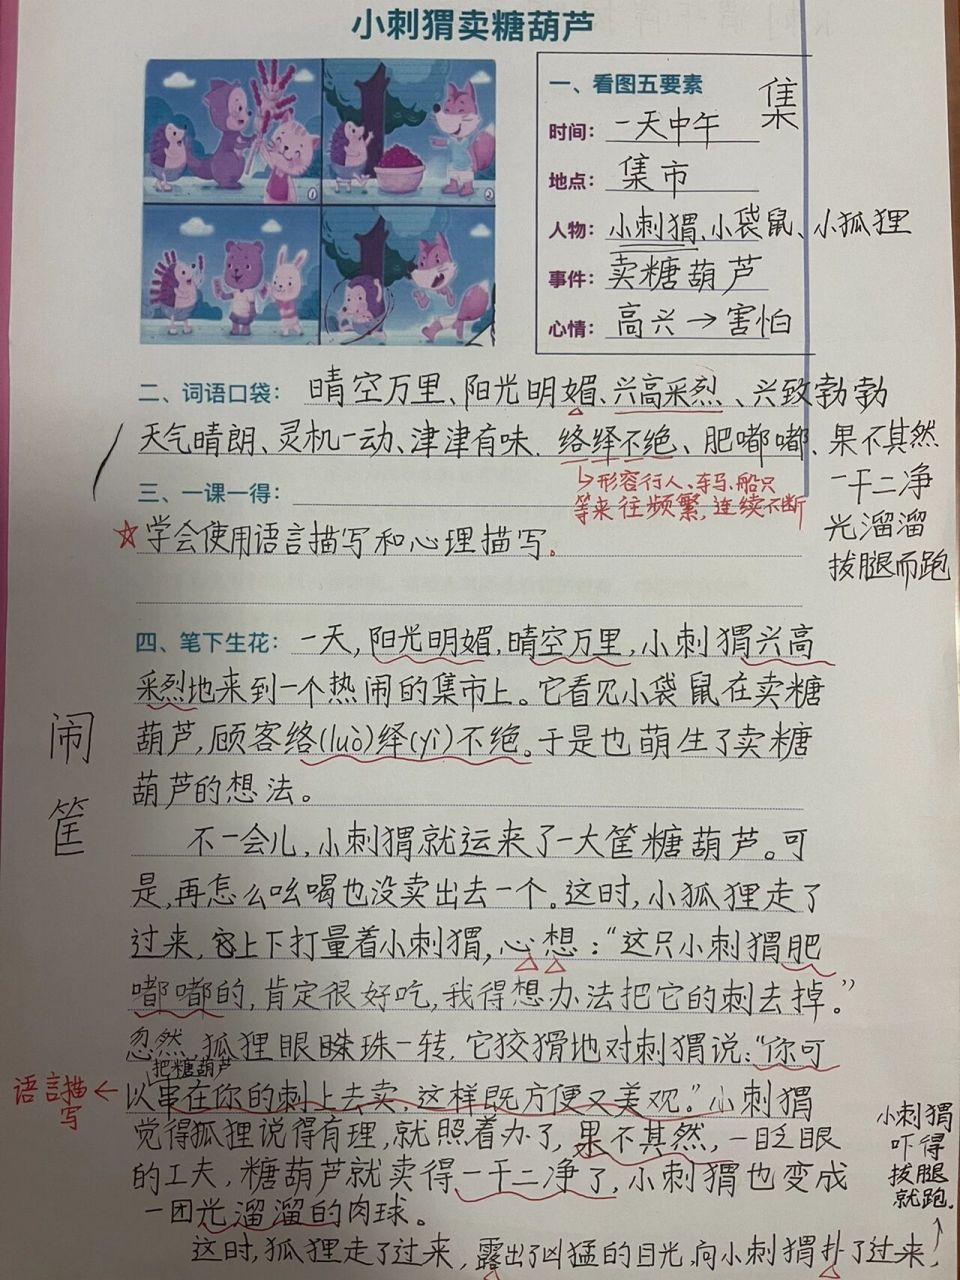 小刺猬卖糖葫芦
一、看图五要素
集
时间：一天中午
地点：集市
人物：小刺猬、小袋鼠、小狐狸
事件：卖糖葫芦
心情：高兴→害怕
二、词语口袋：晴空万里、阳光明媚、兴高采烈、兴致勃勃
天气晴朗、灵机一动、津津有味、络绎不绝、肥嘟嘟、果不其然
一干二净
光溜溜
拔腿而跑
↳形容行人、车马、船只
等来往频繁，连续不断
三、一课一得：
☆学会使用语言描写和心理描写。
四、笔下生花：一天，阳光明媚，晴空万里，小刺猬兴高
采烈地来到一个热闹的集市上。它看见小袋鼠在卖糖
葫芦，顾客络(luò)绎(yì)不绝。于是也萌生了卖糖
葫芦的想法。
闹
筐
不一会儿，小刺猬就运来了一大筐糖葫芦。可
是，再怎么吆喝也没卖出去一个。这时，小狐狸走了
过来，它上下打量着小刺猬，心想：“这只小刺猬肥
嘟嘟的，肯定很好吃，我得想办法把它的刺去掉。”
忽然，狐狸眼睐珠一转，它狡猾地对刺猬说：“你可
把糖葫芦
以串在你的刺上去卖，这样既方便又美观。”小刺猬
语言描写←
觉得狐狸说得有理，就照着办了，果不其然，一眨眼
的工夫，糖葫芦就卖得一干二净了，小刺猬也变成
一团光溜溜的肉球。
这时，狐狸走了过来，露出了凶猛的目光，向小刺猬扑了过来，
小刺猬
吓得
拔腿
就跑。